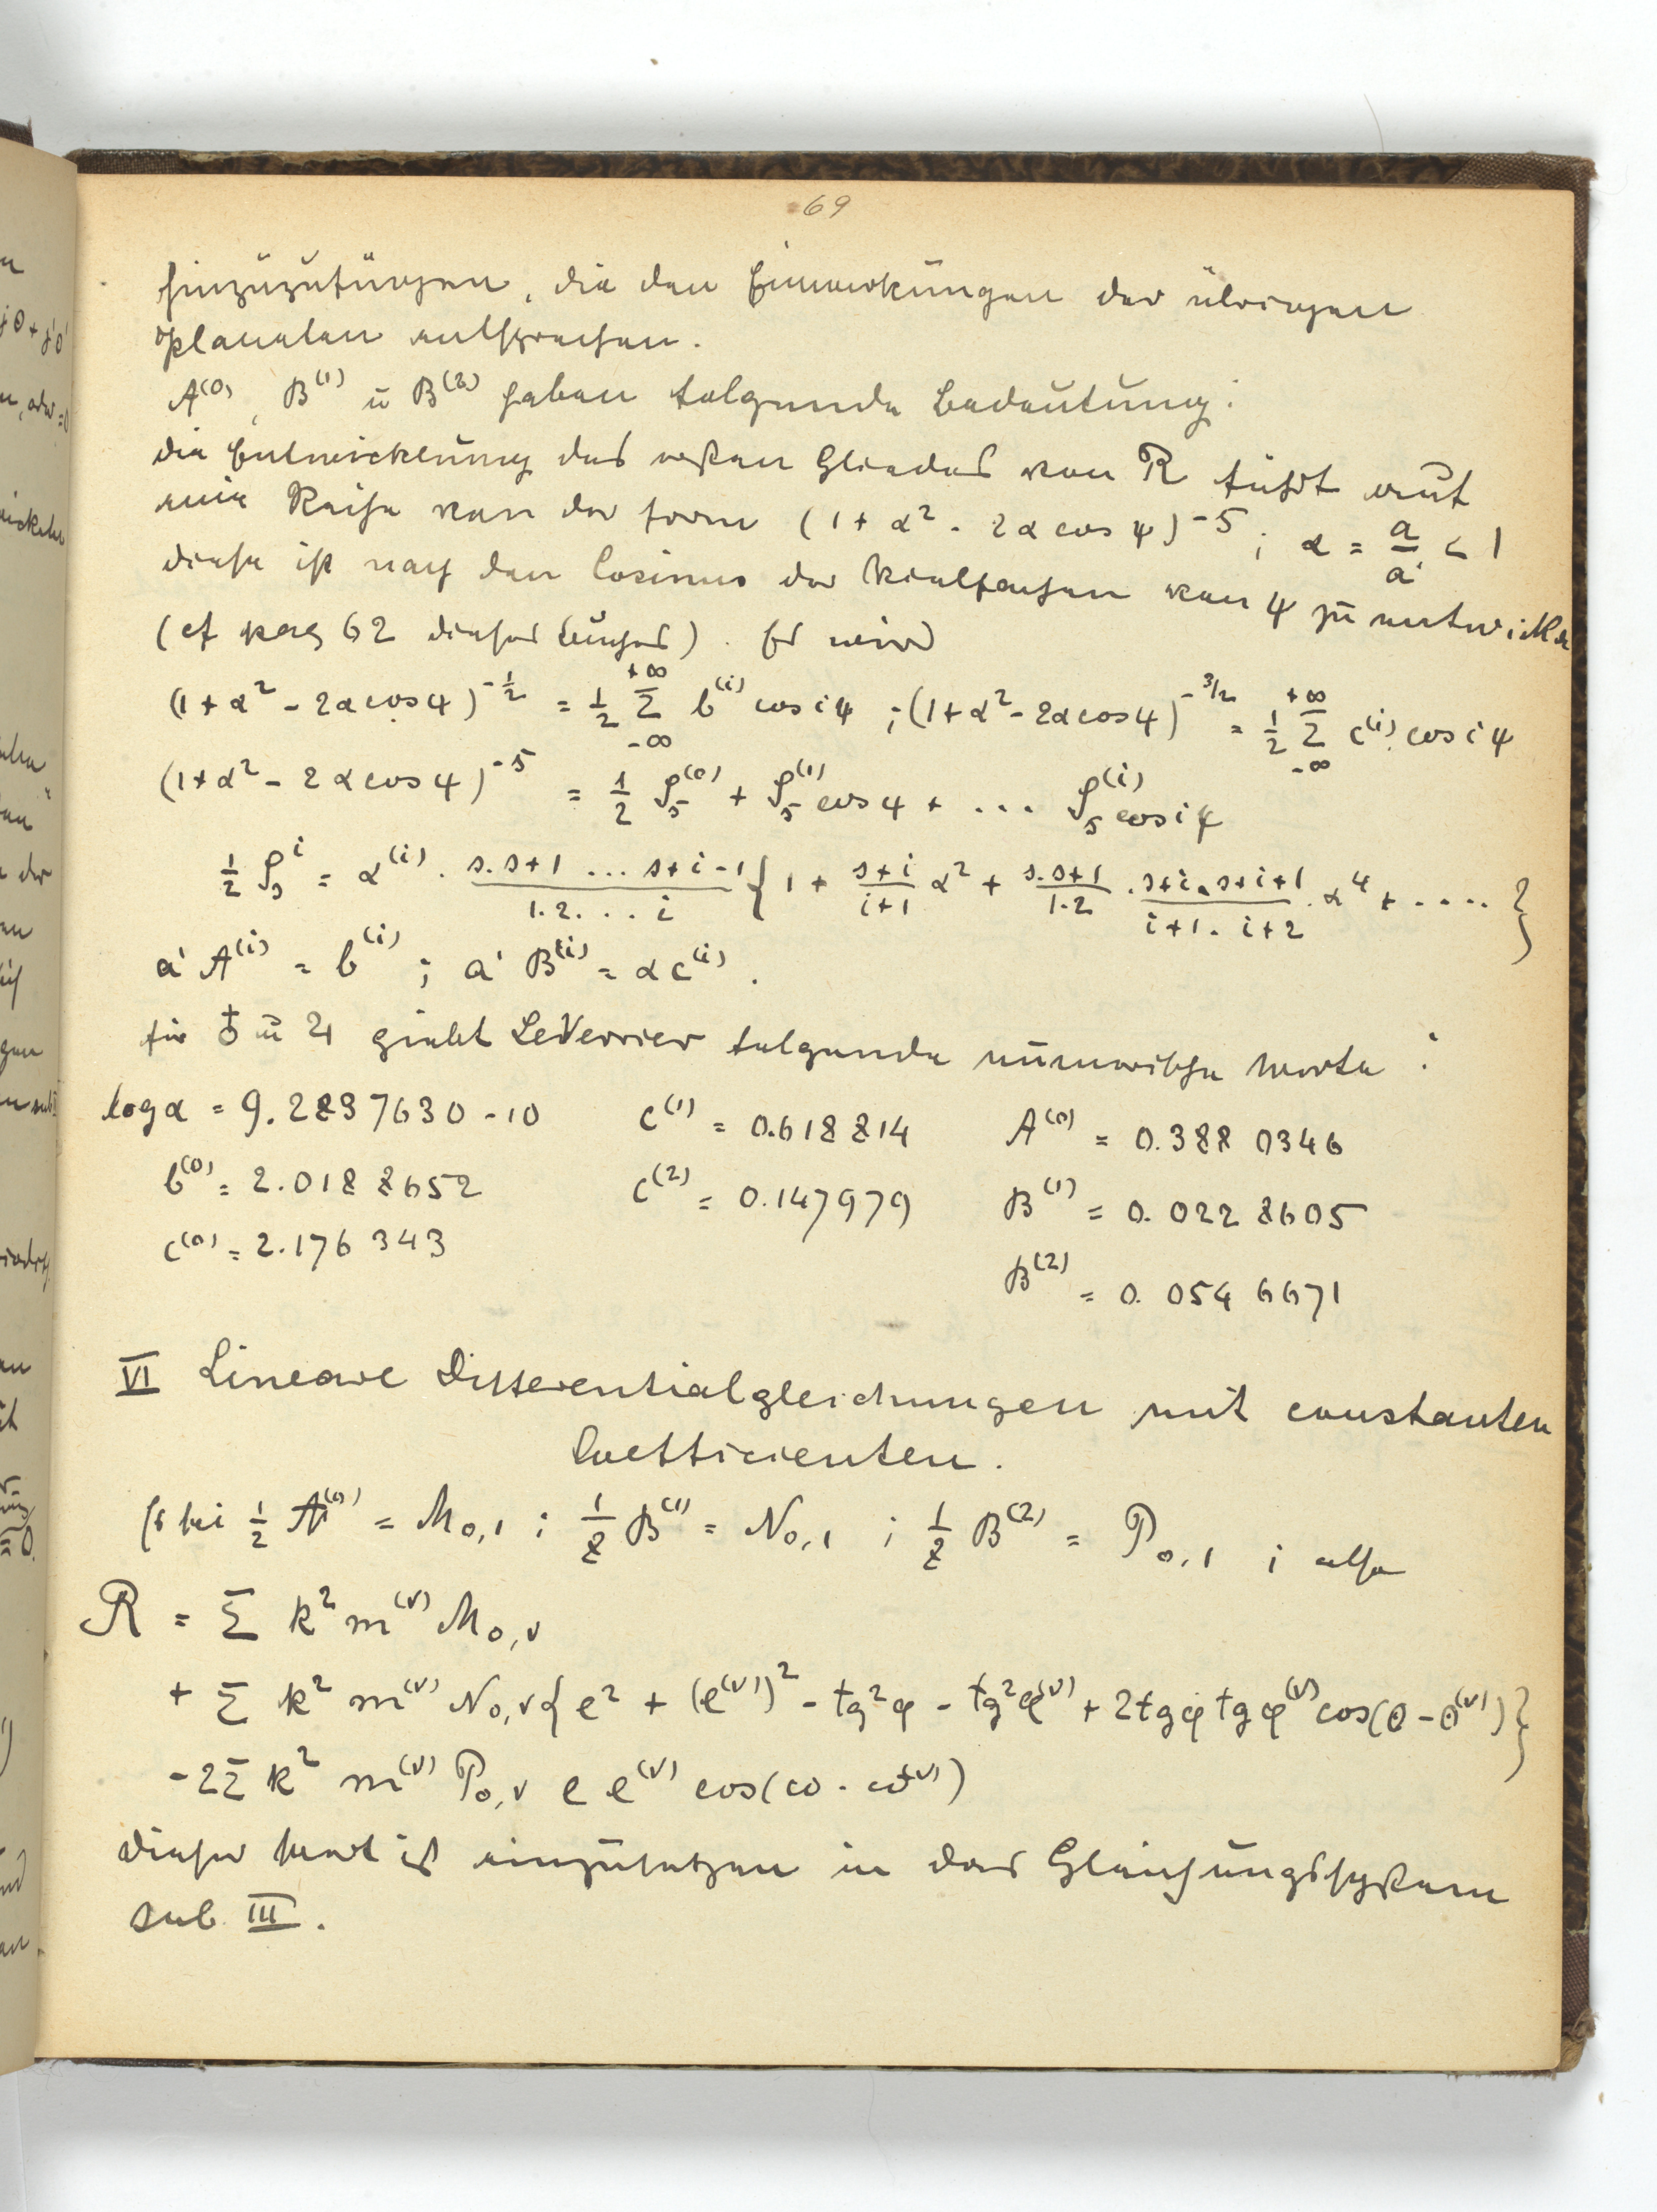 69
hinzuzufügen, die den Einwirkungen der übrigen
Planeten entsprechen.
A⁽⁰⁾, B⁽¹⁾ u B⁽²⁾ haben folgende Bedeutung:
die Entwicklung des ersten Gliedes von R führt auf
eine Reihe von der Form (1 + α² - 2α cos ψ)⁻ˢ; α = a/a' < 1
diese ist nach den Cosinus der Vielfachen von ψ zu entwickeln
(cf pag 62 dieses Buches). Es wird
(1 + α² - 2α cos ψ)^(-1/2) = 1/2 Σ_{-∞}^{+∞} b⁽ⁱ⁾ cos iψ ; (1 + α² - 2α cos ψ)^(-3/2) = 1/2 Σ_{-∞}^{+∞} c⁽ⁱ⁾ cos iψ
(1 + α² - 2α cos ψ)⁻ˢ = 1/2 β_s⁽⁰⁾ + β_s⁽¹⁾ cos ψ + ... β_s⁽ⁱ⁾ cos iψ
1/2 β_sⁱ = α⁽ⁱ⁾ · (s. s+1 ... s+i-1)/(1. 2. ... i) {1 + (s+i)/(i+1) α² + (s. s+1)/(1. 2) · (s+i. s+i+1)/(i+1. i+2) · α⁴ + ....}
a' A⁽ⁱ⁾ = b⁽ⁱ⁾ ; a' B⁽ⁱ⁾ = α c⁽ⁱ⁾.
für ♁ u ♃ giebt LeVerrier folgende numerische Werte:
log α = 9.2837630 - 10 c⁽¹⁾ = 0.618814 A⁽⁰⁾ = 0.3880346
b⁽⁰⁾ = 2.0188652 c⁽²⁾ = 0.147979 B⁽¹⁾ = 0.0228605
c⁽⁰⁾ = 2.176343 B⁽²⁾ = 0.0546671
VI Lineare Differentialgleichungen mit constanten
Coefficienten.
Es sei 1/2 A⁽⁰⁾ = M₀,₁ ; 1/8 B⁽¹⁾ = N₀,₁ ; 1/8 B⁽²⁾ = P₀,₁ ; also
R = Σ k² m⁽ᵛ⁾ M₀,ᵥ
+ Σ k² m⁽ᵛ⁾ N₀,ᵥ {e² + (e⁽ᵛ⁾)² - tg² φ - tg² φ⁽ᵛ⁾ + 2 tg φ tg φ⁽ᵛ⁾ cos(θ - θ⁽ᵛ⁾)}
- 2 Σ k² m⁽ᵛ⁾ P₀,ᵥ e e⁽ᵛ⁾ cos(ω - ω⁽ᵛ⁾)
dieser Wert ist einzusetzen in das Gleichungssystem
sub III.